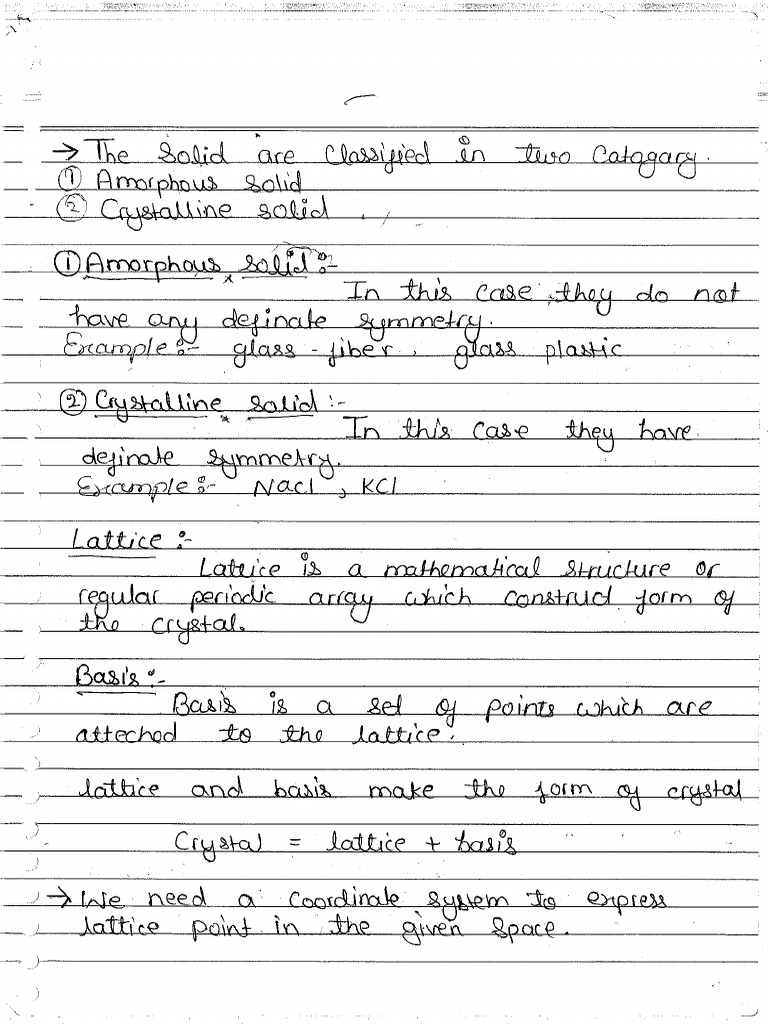 → The solid are classified in two catagary.
① Amorphous solid
② Crystalline solid
① Amorphous solid :-
In this case, they do not
have any definate symmetry.
Example :- glass - fiber, glass plastic
② Crystalline solid :-
In this case they have
definate symmetry.
Example :- Nacl, KCl
Lattice :-
Lattice is a mathematical structure or
regular periodic array which construct form of
the crystal.
Basis :-
Basis is a set of points which are
atteched to the lattice.
lattice and basis make the form of crystal
Crystal = lattice + basis
→ We need a coordinate system to express
lattice point in the given space.